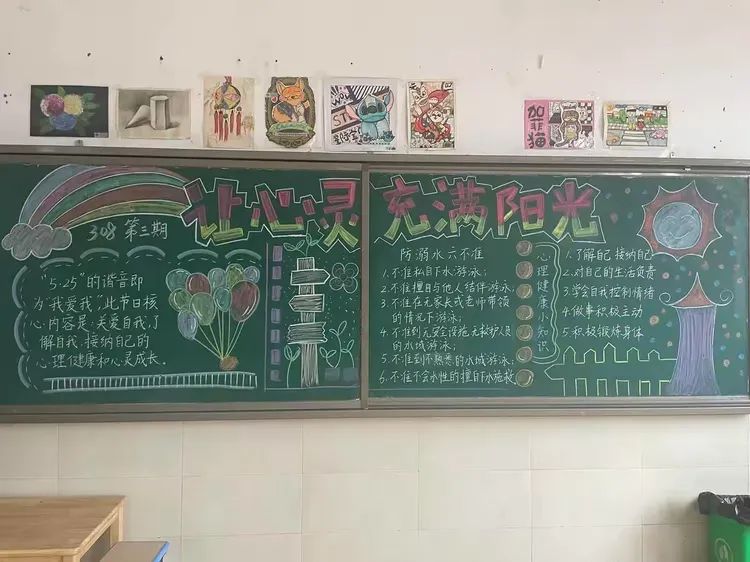 STI
加菲猫
让心灵充满阳光
308 第三期
"5·25"的谐音即
为"我爱我",此节日核
心内容是:关爱自我,了
解自我,接纳自己的
心理健康和心灵成长。
防溺水六不准
1.不准私自下水游泳;
2.不准擅自与他人结伴游泳;
3.不准在无家长或老师带领
的情况下游泳;
4.不准到无安全设施、无救护人员
的水域游泳;
5.不准到不熟悉的水域游泳;
6.不准不会水性的擅自下水施救
心理健康小知识
1.了解自己 接纳自己
2.对自己的生活负责
3.学会自我控制情绪
4.做事积极主动
5.积极锻炼身体